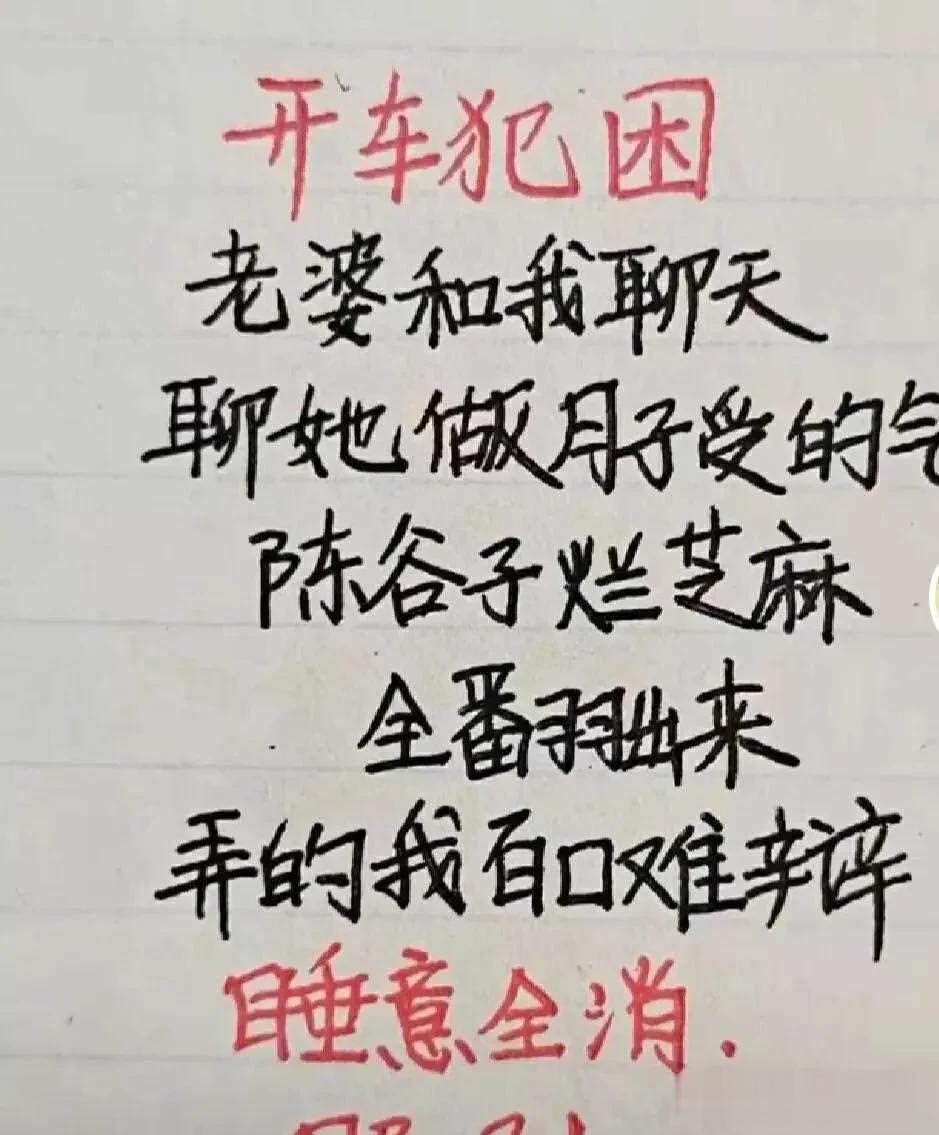 开车犯困
老婆和我聊天
聊她做月子受的气
陈谷子烂芝麻
全翻出来
弄的我百口难辩
睡意全消.